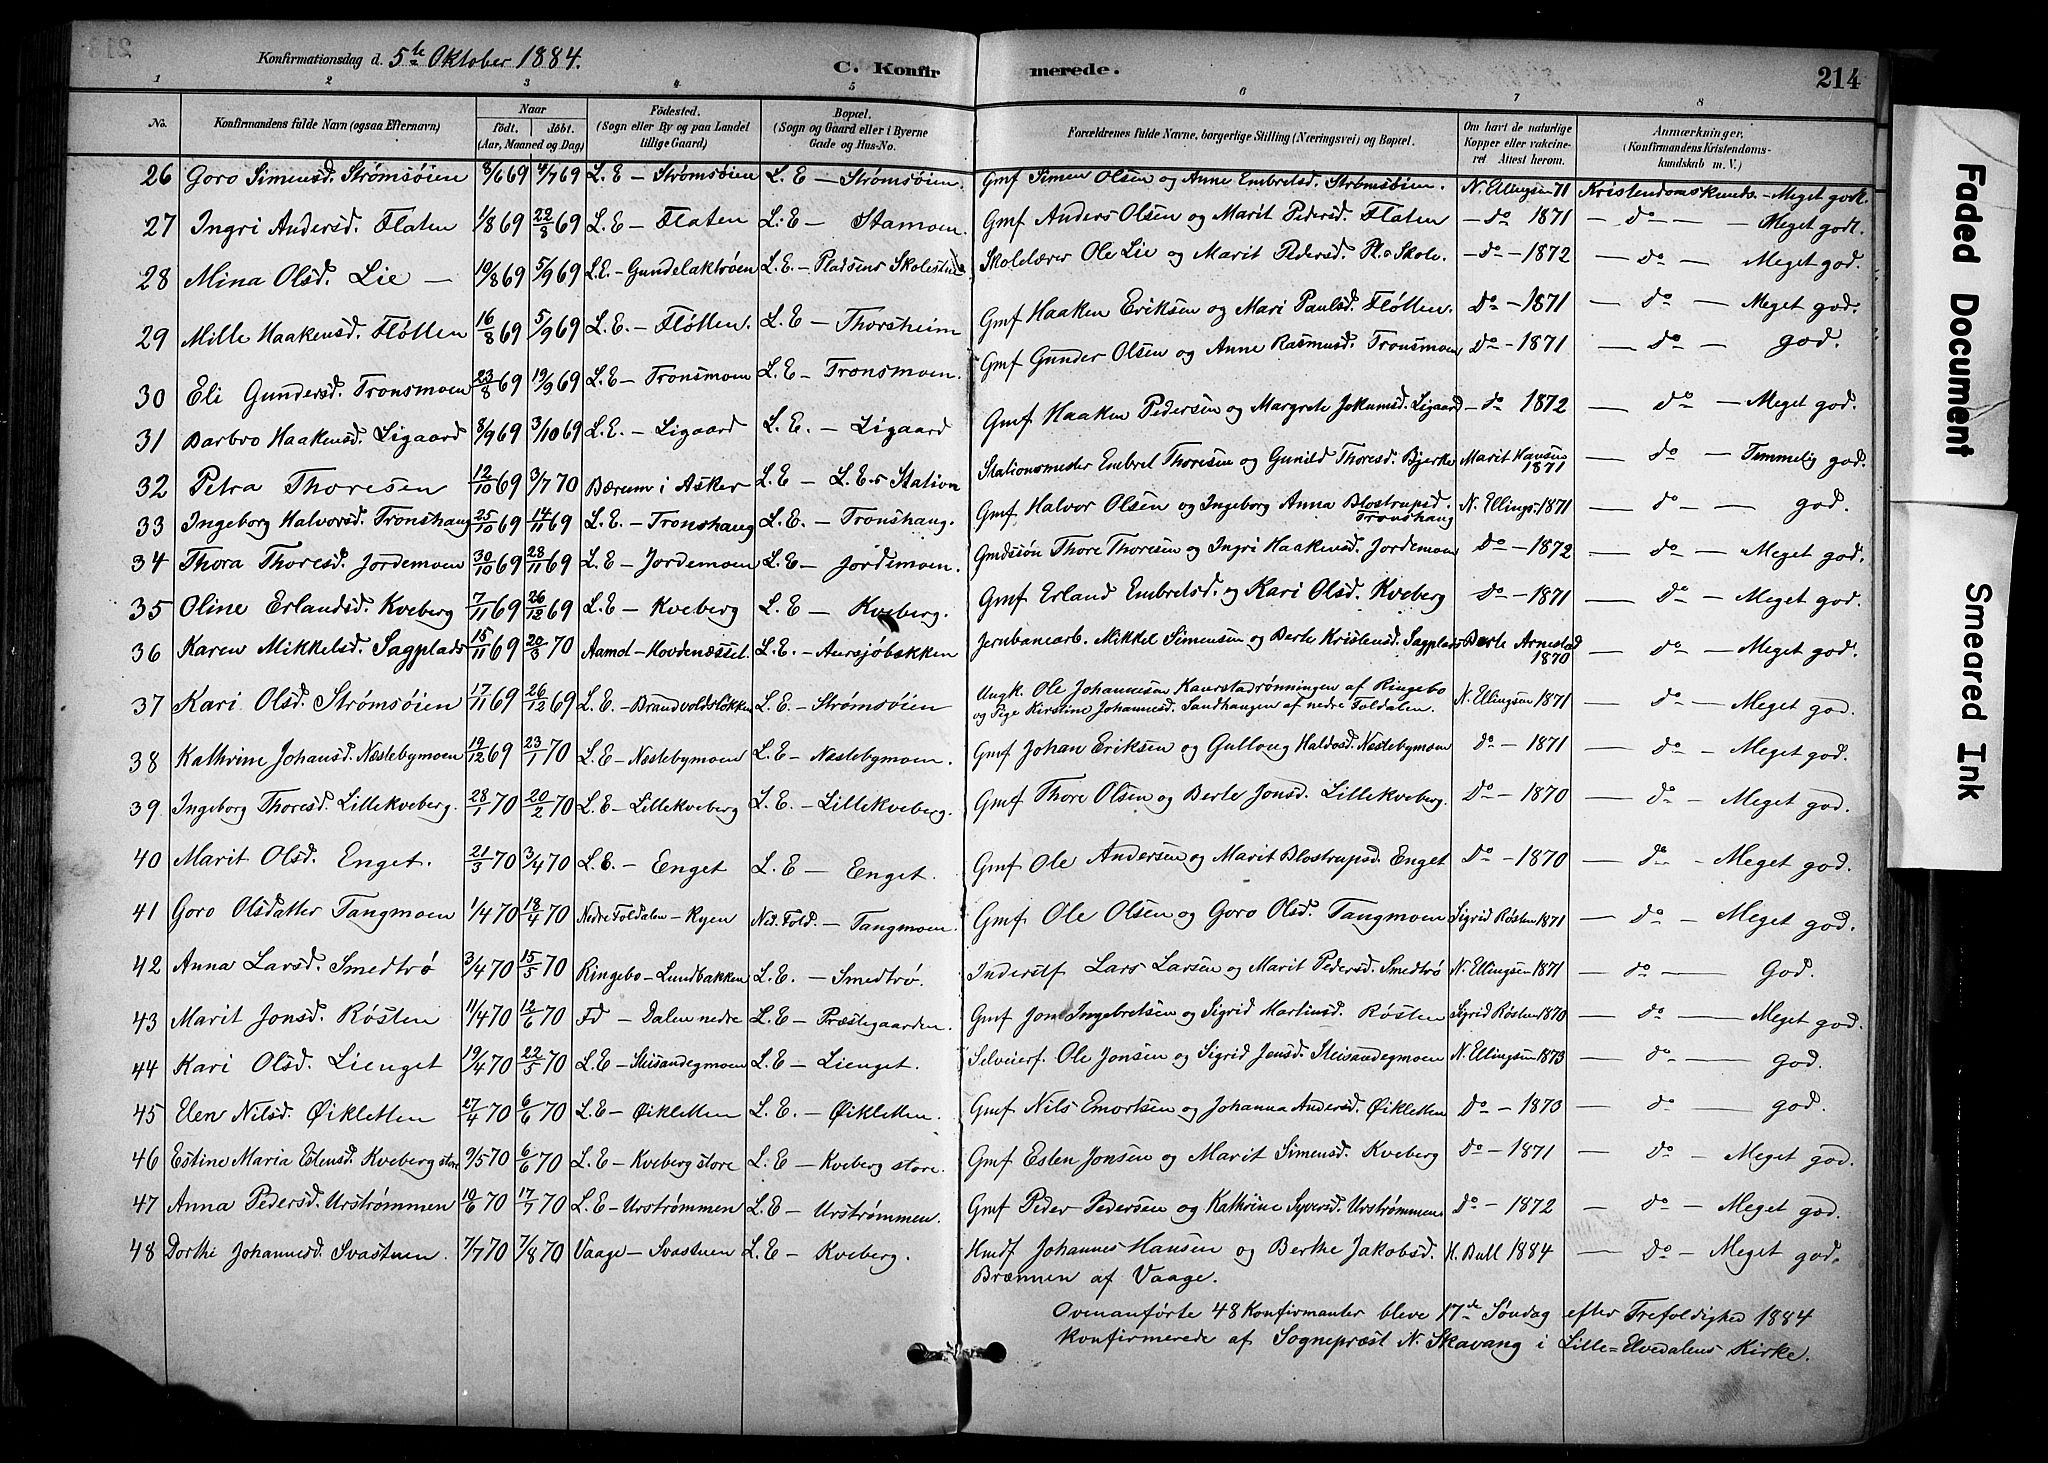 Konfirmationsdag d. 5te Oktober 1884.
C. Konfirmerede.
214
1 2 3 4 5 6 7 8
No. | Konfirmandens fulde Navn (ogsaa Efternavn) | Naar födt. döbt. (Aar, Maaned og Dag) | Födested. (Sogn eller By og paa Landet tillige Gaard) | Bopæl. (Sogn og Gaard eller i Byerne Gade og Hus-No. | Forældrenes fulde Navne, borgerlige Stilling (Næringsvei) og Bopæl. | Om havt de naturlige Kopper eller vaccineret Attest herom. | Anmærkninger. (Konfirmandens Kristendomskundskab m. V.)
26 Goro Simensd. Strømsøien 8/6 69 4/7 69 L. E - Strømsøien L. E - Strømsøien. Gmf Simen Olsen og Anne Embretsd. Strømsøien. N. Ellingsen 71 Kristendomskunds. - Meget godt.
27 Ingri Andersd. Flaten 1/8 69 22/8 69 L. E - Flaten L. E - Stamoen. Gmf Anders Olsen og Marit Pedersd. Flaten - do 1871 - do - Meget godt.
28 Mina Olsd. Lie - 10/8 69 5/9 69 L. E. - Gundelaktrøen L. E. - Pladsens Skolestue Skolelærer Ole Lie og Marit Pedersd. Pl. Skole. - do - 1872 - do - Meget god.
29 Mille Haakensd. Fløtten 16/8 69 5/9 69 L. E. - Fløtten. L. E - Thorsheim Gmf Haaken Eriksen og Mari Paulsd. Fløtten. do - 1871 - do - Meget god.
30 Eli Gundersd. Tronsmoen 23/8 69 19/9 69 L. E - Tronsmoen L. E - Tronsmoen. Gmf Gunder Olsen og Anne Rasmusd. Tronsmoen do - 1871 - do - god.
31 Barbro Haakensd. Ligaard 8/9 69 3/10 69 L. E. - Ligaard L. E. - Ligaard Gmf Haaken Pedersen og Margrete Jokumsd. Ligaard - do 1872 - do - Meget god.
32 Petra Thoresen 12/10 69 3/7 70 Bærum i Asker L. E - L. E.s Station Stationsmester Embret Thoresen og Gunild Thoresd. Bjerke Marit Hansen 1871 - do - Temmelig god.
33 Ingeborg Halvorsd. Tronshaug 25/10 69 14/11 69 L. E. - Tronshaug L. E. - Tronshaug. Gmf Halvor Olsen og Ingeborg Anna Blostrupsd. Tronshaug N. Ellings. 1871 - do - god.
34 Thora Thoresd. Jordemoen 30/10 69 28/11 69 L. E - Jordemoen L. E - Jordemoen. Gmdssøn Thore Thoresen og Ingri Haakensd. Jordemoen do - 1872 - do - Meget god.
35 Oline Erlandsd. Kveberg 7/11 69 26/12 69 L. E - Kveberg L. E - Kveberg. Gmf Erland Embretsd. og Kari Olsd. Kveberg do - 1871 - do - Meget god.
36 Karen Mikkelsd. Sagplads 15/11 69 20/3 70 Aamot - Hovdenæsset. L. E. - Aursjøbækken Jernbanearb. Mikkel Simensen og Berte Kristensd. Sagplads Berte Arnestad 1870 - do - Meget god.
37 Kari Olsd. Strømsøien 17/11 69 26/12 69 L. E. - Brandvoldsløkken L. E. - Strømsøien Ungk. Ole Johannesen Kaurstadrønningen af Ringebo og Pige Kirstine Johannesd. Sandhaugen af nedre Foldalen. N. Ellingsen 1871 - do - Meget god.
38 Kathrine Johansd. Næstebymoen 19/12 69 23/1 70 L. E - Nestebymoen L. E - Næstebymoen. Gmf Johan Eriksen og Gulloug Haldosd. Nestebymoen do - 1871 - do - Meget god.
39 Ingeborg Thoresd. Lillekveberg. 28/1 70 20/2 70 L. E - Lillekveberg L. E. - Lillekveberg. Gmf Thore Olsen og Berte Jonsd. Lillekveberg. do - 1870 - do - Meget god.
40 Marit Olsd. Enget. 21/3 70 3/4 70 L. E. - Enget L. E - Enget. Gmf Ole Andersen og Marit Blostrupsd. Enget do - 1870 - do - Meget god.
41 Goro Olsdatter Tangmoen 1/4 70 18/4 70 Nedre Foldalen - Ryen Ned. Fold. - Tangmoen. Gmf Ole Olsen og Goro Olsd. Tangmoen Sigrid Røsten 1871 - do - Meget god.
42 Anna Larsd. Smedtrø 3/4 70 15/5 70 Ringebo - Lundbakken L. E. - Smedtrø. Inderstf Lars Larsen og Marit Pedersd. Smedtrø N. Ellingsen 1871 - do - God.
43 Marit Jonsd. Røsten 11/4 70 12/6 70 Fd - Dalen nedre L. E - Præstegaarden. Gmf Jon Ingebretsen og Sigrid Martinsd. Røsten Sigrid Røsten 1870 - do - Meget god.
44 Kari Olsd. Lienget 19/4 70 22/5 70 L. E - Steisandegmoen L. E - Lienget. Selveierf. Ole Jonsen og Sigrid Jensd. Steisandegmoen N. Ellingsen 1873 - do - god.
45 Elen Nilsd. Øikletten 27/4 70 6/6 70 L. E - Øikletten L. E. - Øikletten. Gmf Nils Emortsen og Johanna Andersd. Øikletten do - 1870 - do - god.
46 Estine Maria Estensd. Kveberg store 9/5 70 6/6 70 L. E - Kveberg store L. E - Kveberg store. Gmf Esten Jonsen og Marit Simensd. Kveberg do - 1871 - do - Meget god.
47 Anna Pedersd. Urstrømmen 10/6 70 17/7 70 L. E - Urstrømmen L. E - Urstrømmen. Gmf Peder Pedersen og Kathrine Syversd. Urstrømmen do - 1872 - do - Meget god.
48 Dorthe Johannesd. Svastuen. 7/7 70 7/8 70 Vaage - Svastuen L. E - Kveberg. Hmdf Johannes Hansen og Berthe Jakobsd. Brænnen af Vaage. H. Bull 1884 - do - Meget god.
Ovenanførte 48 Konfirmanter bleve 17de Søndag efter Trefoldighed 1884
konfirmerede af Sognepræst N. Skavang i Lille=Elvedalens Kirke.
Faded Document
Smeared Ink